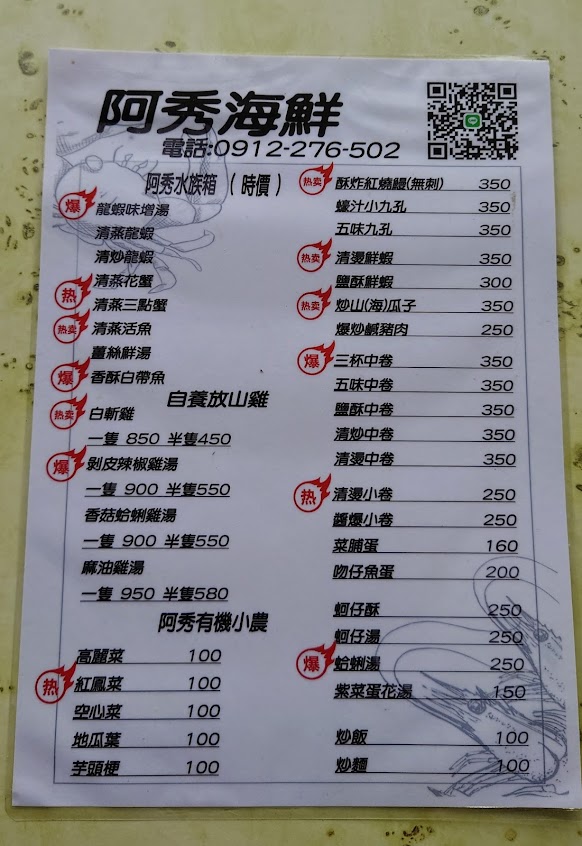 阿秀海鮮
電話:0912-276-502
阿秀水族箱 ( 時價 )
爆 龍蝦味增湯
清蒸龍蝦
清炒龍蝦
热 清蒸花蟹
清蒸三點蟹
热卖 清蒸活魚
薑絲鮮湯
爆 香酥白帶魚
自養放山雞
热卖 白斬雞
一隻 850 半隻450
爆 剝皮辣椒雞湯
一隻 900 半隻550
香菇蛤蜊雞湯
一隻 900 半隻550
麻油雞湯
一隻 950 半隻580
阿秀有機小農
高麗菜 100
热 紅鳳菜 100
空心菜 100
地瓜葉 100
芋頭梗 100
热卖 酥炸紅燒鰻(無刺) 350
蠔汁小九孔 350
五味九孔 350
热卖 清燙鮮蝦 350
鹽酥鮮蝦 300
热卖 炒山(海)瓜子 350
爆炒鹹豬肉 250
爆 三杯中卷 350
五味中卷 350
鹽酥中卷 350
清炒中卷 350
清燙中卷 350
热 清燙小卷 250
醬爆小卷 250
菜脯蛋 160
吻仔魚蛋 200
蚵仔酥 250
蚵仔湯 250
爆 蛤蜊湯 250
紫菜蛋花湯 150
炒飯 100
炒麵 100